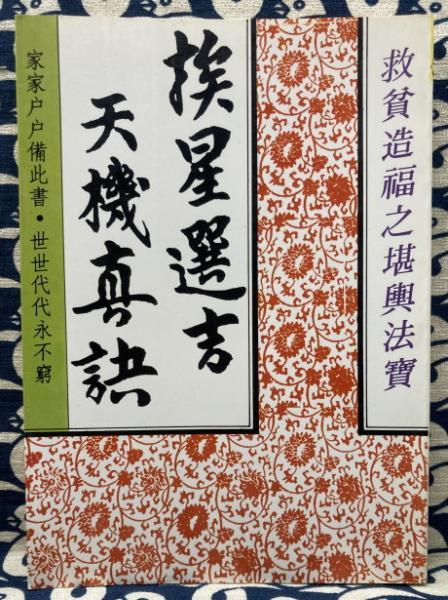 救貧造福之堪輿法寶
挨星選吉
天機真訣
家家户户備此書·世世代代永不窮